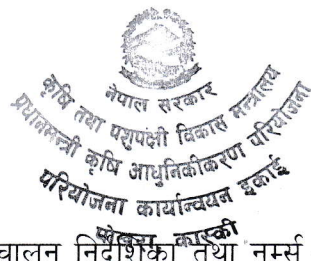 नेपाल सरकार
कृषि तथा पशुपंक्षी विकास मन्त्रालय
प्रधानमन्त्री कृषि आधुनिकीकरण परियोजना
परियोजना कार्यान्वयन इकाई
कास्की
चालन निर्देशिका तथा नर्म्स